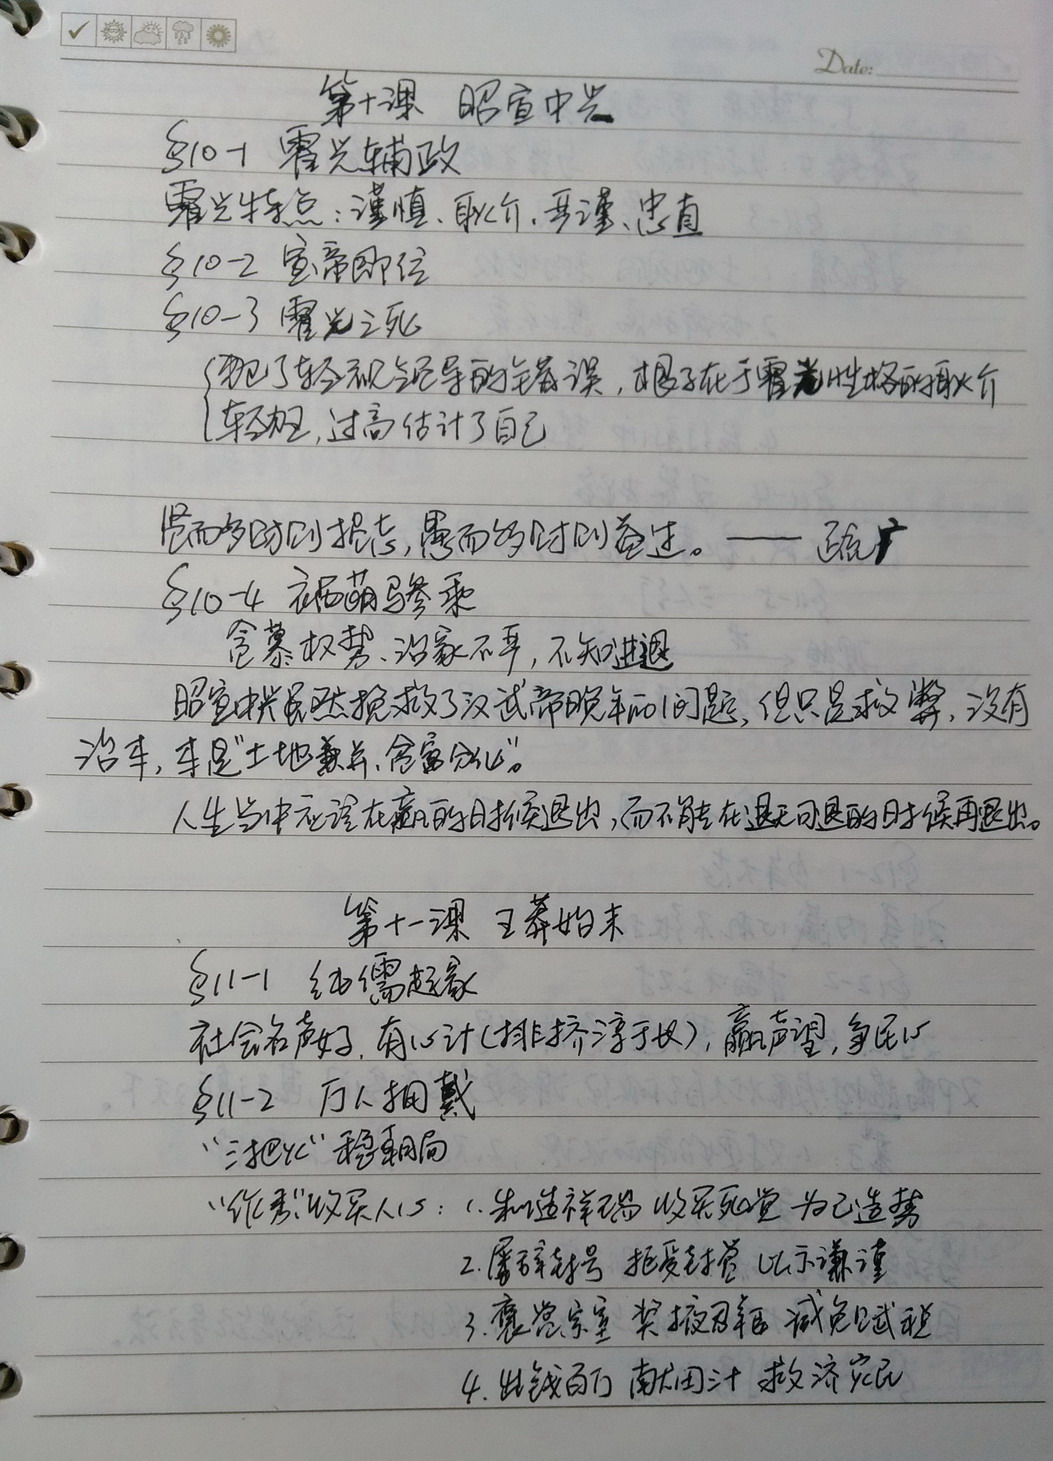 Date:
第十课 昭宣中兴
§10-1 霍光辅政
霍光特点:谨慎、耿介、严谨、忠直
§10-2 宣帝即位
§10-3 霍光之死
犯了轻视领导的错误,根子在于霍光性格的耿介
轻狂,过高估计了自己
贤而多财则损志,愚而多财则益过。—— 疏广
§10-4 衣西萌马参乘
贪慕权势、治家不严,不知进退
昭宣中兴虽然挽救了汉武帝晚年的问题,但只是救弊,没有
治本,本是"土地兼并、贫富分化"。
人生当中应该在赢的时候退出,而不能在退无可退的时候再退出。
第十一课 王莽始末
§11-1 红儒起家
社会名声好,有心计(排挤淳于长),赢声望,争民心
§11-2 万人拥戴
"三把火"稳朝局
"作秀"收买人心:1.制造祥瑞 收买死党 为己造势
2.屡辞封号 拒受封赏 以示谦谨
3.褒赏宗室 奖掖 减免赋税
4.出钱百万 献田三十 救济灾民